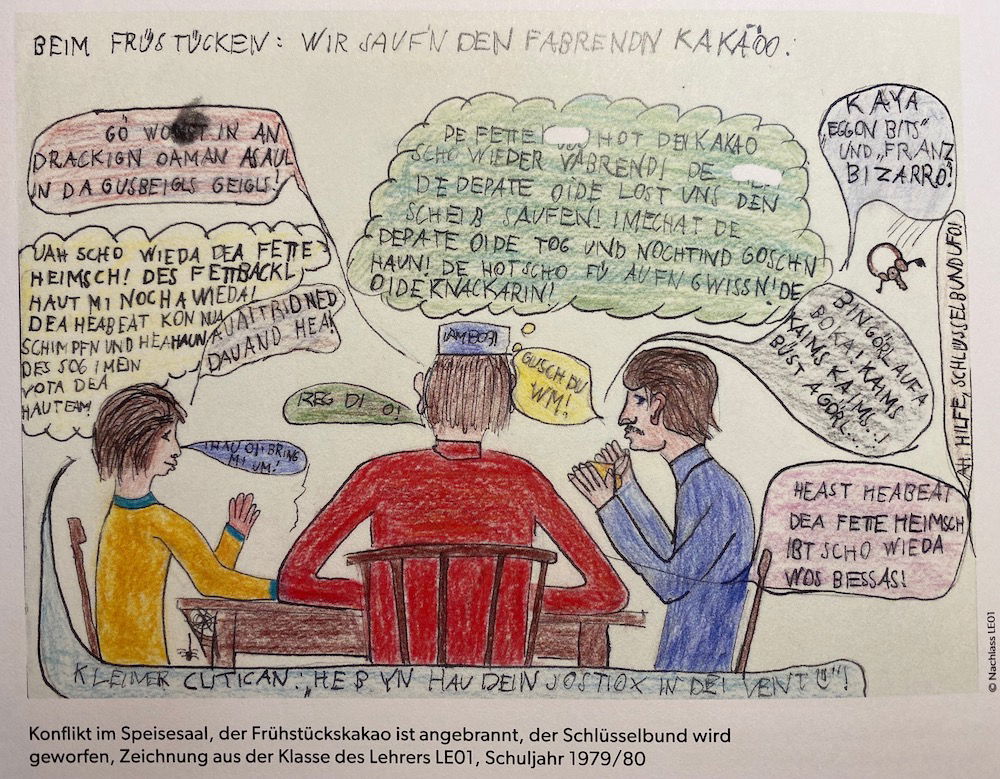 BEIM FRÜSTÜCKEN: WIR SAUFN DEN FABRENDN KAKÄOO.
GÖ WONST IN AN
DRACKIGN OAMAN ASAUL
IN DA GUSBEIGLS GEIGLS!
DE FETTE HOT DEN KAKAO
SCHO WIEDER VABREND! DE
DE DEPATE OIDE LOST UNS DEN
SCHEIß SAUFEN! I MECHAT DE
DEPATE OIDE TOG UND NOCHT IND GOSCHN
HAUN! DE HOT SCHO FÜ AUFN GWISSN! DE
OIDE KNACKARIN!
KAYA
"EGGON BITS"
UND "FRANZ
BIZARRO!
UAH SCHO WIEDA DEA FETTE
HEIMSCH! DES FETTBACKL
HAUT MI NOCH A WIEDA!
DEA HEABEAT KON NUA
SCHIMPFN UND HEAHAUN
DES SOG I MEIN
VOTA DEA
HAUT EAM
AUATTRID NED
DAUAND HEA!
IAMBO3!
GUSCH DU
WM!
REG DI O!
HAU O! BRING
MI UM!
BINGÖRL AUF A
BOKA! KAIMS
KAIMS KAIMS!
BÜST A GÖRL
AH, HILFE, SCHLÜSSELBUND UFO!
HEAST HEABEAT
DEA FETTE HEIMSCH
IßT SCHO WIEDA
WOS BESSAS!
KLEINER CUTICAN: „HEB YN HAU DEIN JOSTIOX IN DEI VENTÜ"!
© Nachlass LE01
Konflikt im Speisesaal, der Frühstückskakao ist angebrannt, der Schlüsselbund wird
geworfen, Zeichnung aus der Klasse des Lehrers LE01, Schuljahr 1979/80